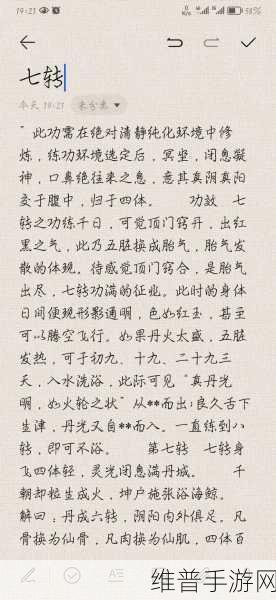 19:21
58%
七转
今天 19:21 未分类
“此功需在绝对清静纯化环境中修
炼，练功环境选定后，冥坐，闭息凝
神，口鼻绝往来之息，意其真阴真阳
交于腹中，归于四体。 功效 七
转之功练千日，可觉顶门窍开，出红
黑之气，此乃五脏换成胎气，胎气发
散的体现。待感觉顶门窍合，是胎气
出尽，七转功满的征业。此时的身体
日间便规形影通明，色如红玉，甚至
可以腾空飞行。如果丹火太盛，五脏
发热，可于初九、十九、二十九三
天，入水洗浴，此际可见“真丹光
明，如火轮之状”从**而出;良久舌下
生津，丹光又自**而入。一直练到八
转，即可不浴。 第七转 七转身
飞四体轻，灵光闭息满丹城。 千
朝却粒生成火，坤户施张浴海鲸。
解曰：丹成六转，阴阳内外俱足。凡
骨换为仙骨，凡肉换为仙肌，四体百
维普手游网